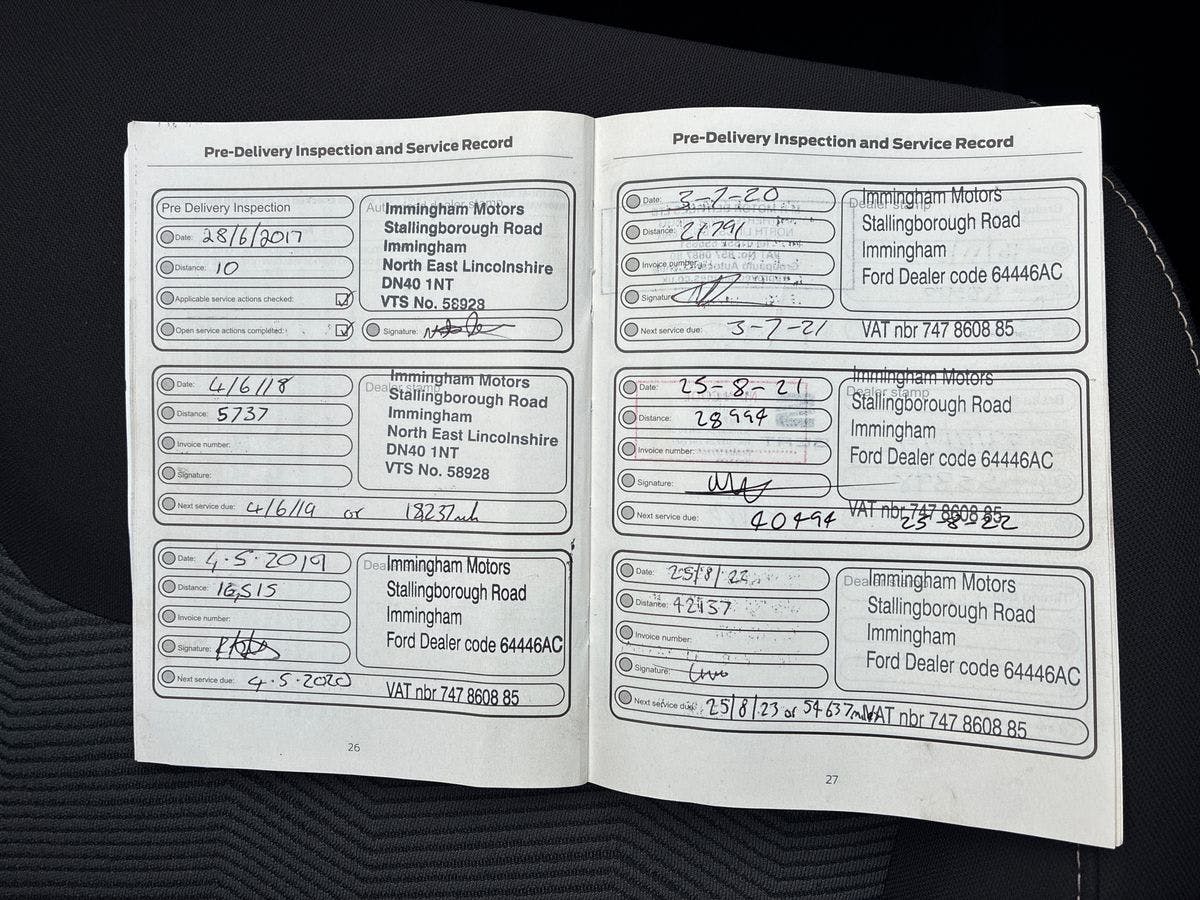 Pre-Delivery Inspection and Service Record
Pre Delivery Inspection
Date: 28/6/2017
Distance: 10
Applicable service actions checked:
Open service actions completed:
Authorised dealer stamp
Immingham Motors
Stallingborough Road
Immingham
North East Lincolnshire
DN40 1NT
VTS No. 58928
Signature:
Date: 4/6/18
Distance: 5737
Invoice number:
Signature:
Dealer stamp
Immingham Motors
Stallingborough Road
Immingham
North East Lincolnshire
DN40 1NT
VTS No. 58928
Next service due: 4/6/19 or 18,237mls
Date: 4.5.2019
Distance: 16,515
Invoice number:
Signature:
Immingham Motors
Stallingborough Road
Immingham
Ford Dealer code 64446AC
Next service due: 4.5.2020
VAT nbr 747 8608 85
26
Pre-Delivery Inspection and Service Record
Date: 3-7-20
Distance: 21791
Invoice number:
Signature:
Dealer stamp
Immingham Motors
Stallingborough Road
Immingham
Ford Dealer code 64446AC
Next service due: 3-7-21
VAT nbr 747 8608 85
Date: 25-8-21
Distance: 28994
Invoice number:
Signature:
Dealer stamp
Immingham Motors
Stallingborough Road
Immingham
Ford Dealer code 64446AC
VAT nbr 747 8608 85
Next service due: 40494 25-8-22
Date: 25/8/22
Distance: 42137
Invoice number:
Signature:
Immingham Motors
Stallingborough Road
Immingham
Ford Dealer code 64446AC
Next service due: 25/8/23 or 54637 miles
VAT nbr 747 8608 85
27